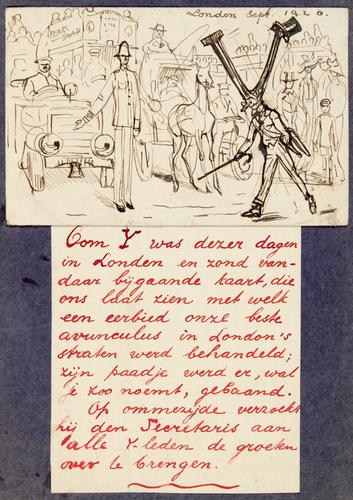 London Sept. 1920.
PEAR
SOAP
Oom Y was dezer dagen
in Londen en zond van-
daar bijgaande kaart, die
ons laat zien met welk
een eerbied onze beste
avunculus in London's
straten werd behandeld;
zijn paadje werd er, wat
je zoo noemt, gebaand.
Op ommezijde verzoekt
hij den Secretaris aan
alle Y-leden de groeten
over te brengen.